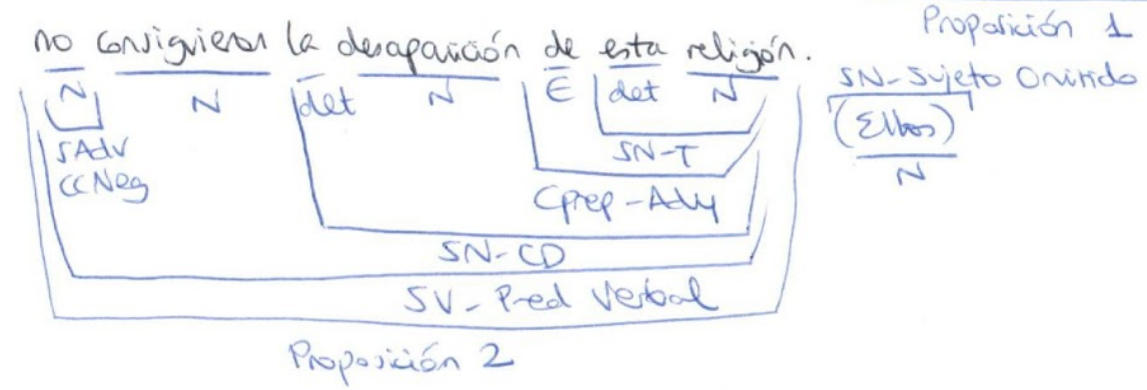 Proposición 1
no consiguieron la desaparición de esta religión.
N N det N E det N
SN-Sujeto Omitido
(Ellos)
N
SAdv
CCNeg
SN-T
Cprep-Ady
SN-CD
SV-Pred Verbal
Proposición 2